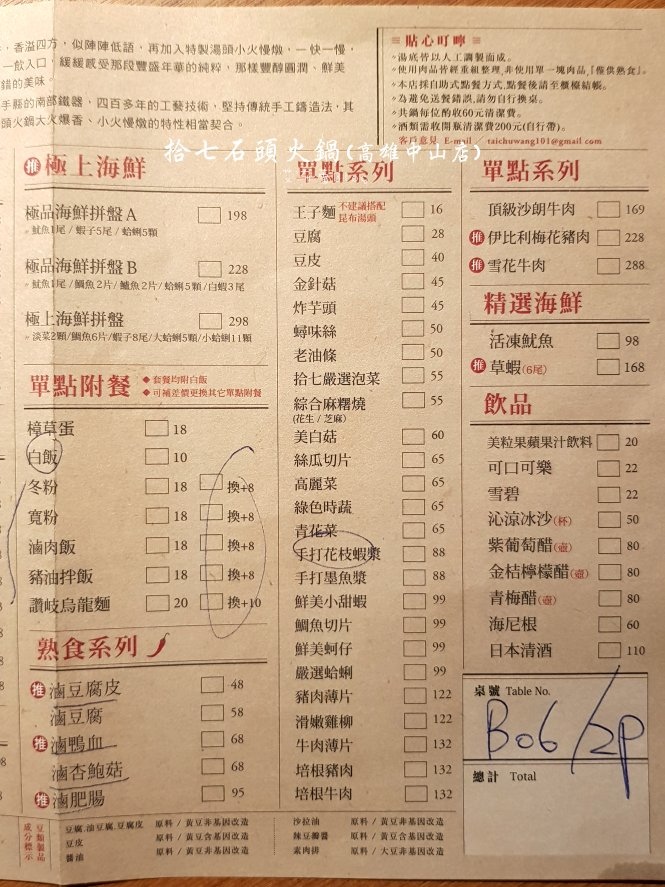 香溢四方，似陣陣低語，再加入特製湯頭小火慢燉，一快一慢，
一飲入口，緩緩感受那段豐盛年華的純粹，那樣豐醇圓潤、鮮美
錯的美味。
手縣的南部鐵器，四百多年的工藝技術，堅持傳統手工鑄造法，其
頭火鍋大火爆香、小火慢燉的特性相當契合。
貼心叮嚀
湯底皆以人工調製而成。
使用肉品皆經重組整理，非使用單一塊肉品『僅供熟食』。
本店採自助式點餐方式，點餐後請至櫃檯結帳。
為避免送餐錯誤，請勿自行換桌。
共鍋每位酌收60元清潔費。
酒類需收開瓶清潔費200元(自行帶)。
客戶意見 E-mail：taichuwang101@gmail.com
拾七石頭火鍋(高雄中山店)
推 極上海鮮
極品海鮮拼盤A 198
魷魚1尾 / 蝦子5尾 / 蛤蜊5顆
極品海鮮拼盤B 228
魷魚1尾 / 鯛魚2片 / 鱸魚2片 / 蛤蜊5顆 / 白蝦3尾
極上海鮮拼盤 298
淡菜2顆 / 鯛魚6片 / 蝦子8尾 / 大蛤蜊5顆 / 小蛤蜊11顆
單點附餐
套餐均附白飯
可補差價更換其它單點附餐
樟草蛋 18
白飯 10
冬粉 18 換+8
寬粉 18 換+8
滷肉飯 18 換+8
豬油拌飯 18 換+8
讚岐烏龍麵 20 換+10
熟食系列
推 滷豆腐皮 48
滷豆腐 58
推 滷鴨血 68
滷杏鮑菇 68
推 滷肥腸 95
單點系列
王子麵 不建議搭配昆布湯頭 16
豆腐 28
豆皮 40
金針菇 45
炸芋頭 45
蟳味絲 50
老油條 50
拾七嚴選泡菜 55
綜合麻糬燒 55
(花生 / 芝麻)
美白菇 60
絲瓜切片 65
高麗菜 65
綠色時蔬 65
青花菜 65
手打花枝蝦漿 88
手打墨魚漿 88
鮮美小甜蝦 99
鯛魚切片 99
鮮美蚵仔 99
嚴選蛤蜊 99
豬肉薄片 122
滑嫩雞柳 122
牛肉薄片 132
培根豬肉 132
培根牛肉 132
單點系列
頂級沙朗牛肉 169
推 伊比利梅花豬肉 228
推 雪花牛肉 288
精選海鮮
活凍魷魚 98
推 草蝦(6尾) 168
飲品
美粒果蘋果汁飲料 20
可口可樂 22
雪碧 22
沁涼冰沙(杯) 50
紫葡萄醋(壺) 80
金桔檸檬醋(壺) 80
青梅醋(壺) 80
海尼根 60
日本清酒 110
桌號 Table No.
B06/2P
總計 Total
豆類製品成分標示
豆腐.油豆腐.豆腐皮 原料 / 黃豆非基因改造
豆皮 原料 / 黃豆含基因改造
醬油 原料 / 黃豆非基因改造
沙拉油 原料 / 黃豆非基因改造
辣豆瓣醬 原料 / 黃豆含基因改造
素肉排 原料 / 大豆非基因改造